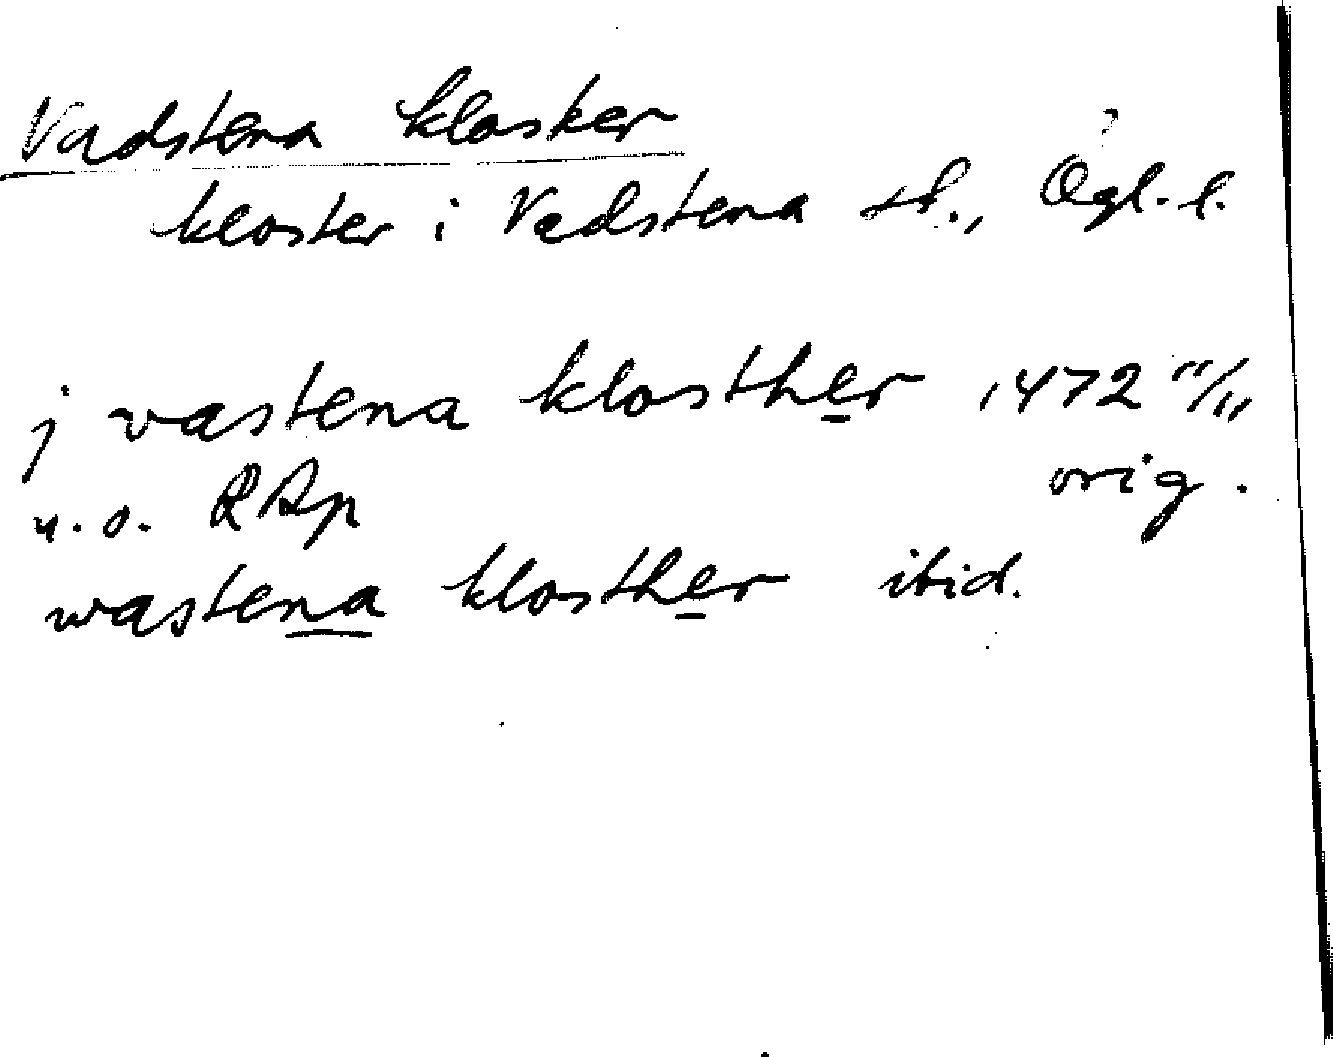 Vadstena kloster
kloster i Vadstena st., Ögl. l.
j vastena klosther 1472 11/11
u.o. RAp orig.
wastena klosther ibid.